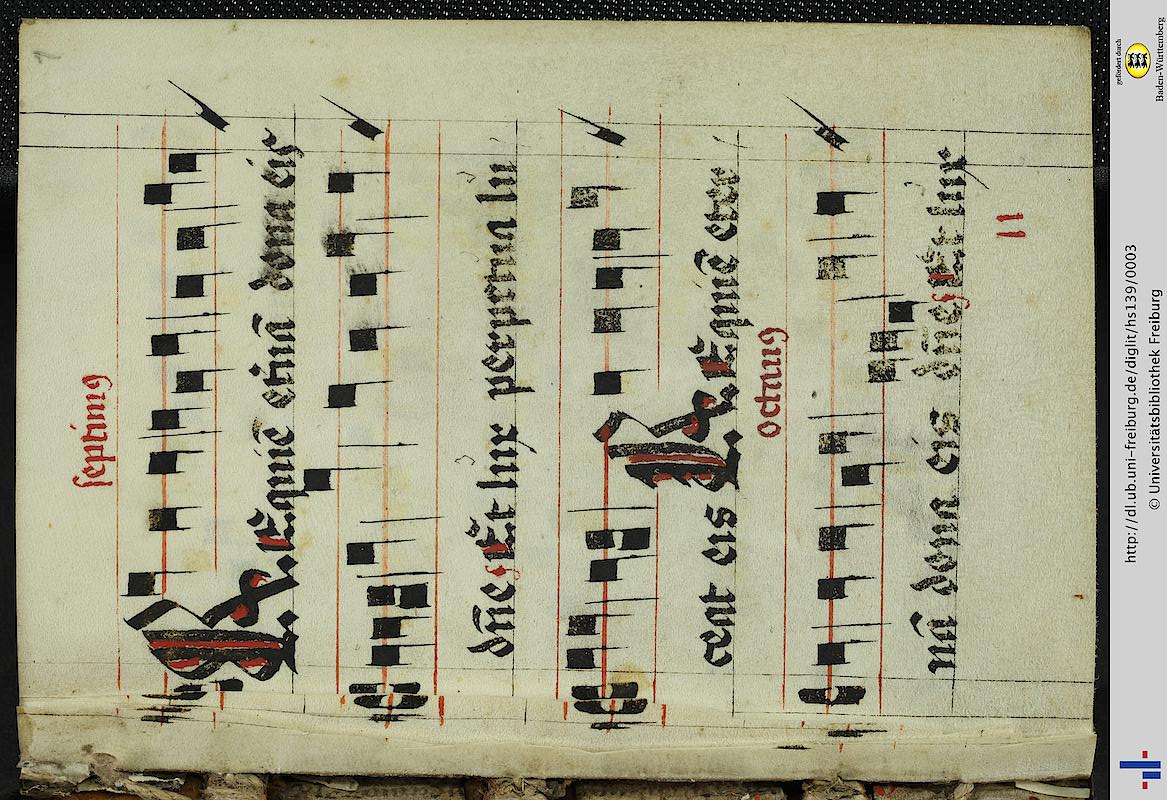 septimꝯ
REquiē et̄nā dona eis
dn̄e Et lux perpetua lu
ceat eis REquiē eter
octauꝯ
nā dona eis dn̄e Et lux
http://dl.ub.uni-freiburg.de/diglit/hs139/0003
© Universitätsbibliothek Freiburg
gefördert durch
Baden-Württemberg